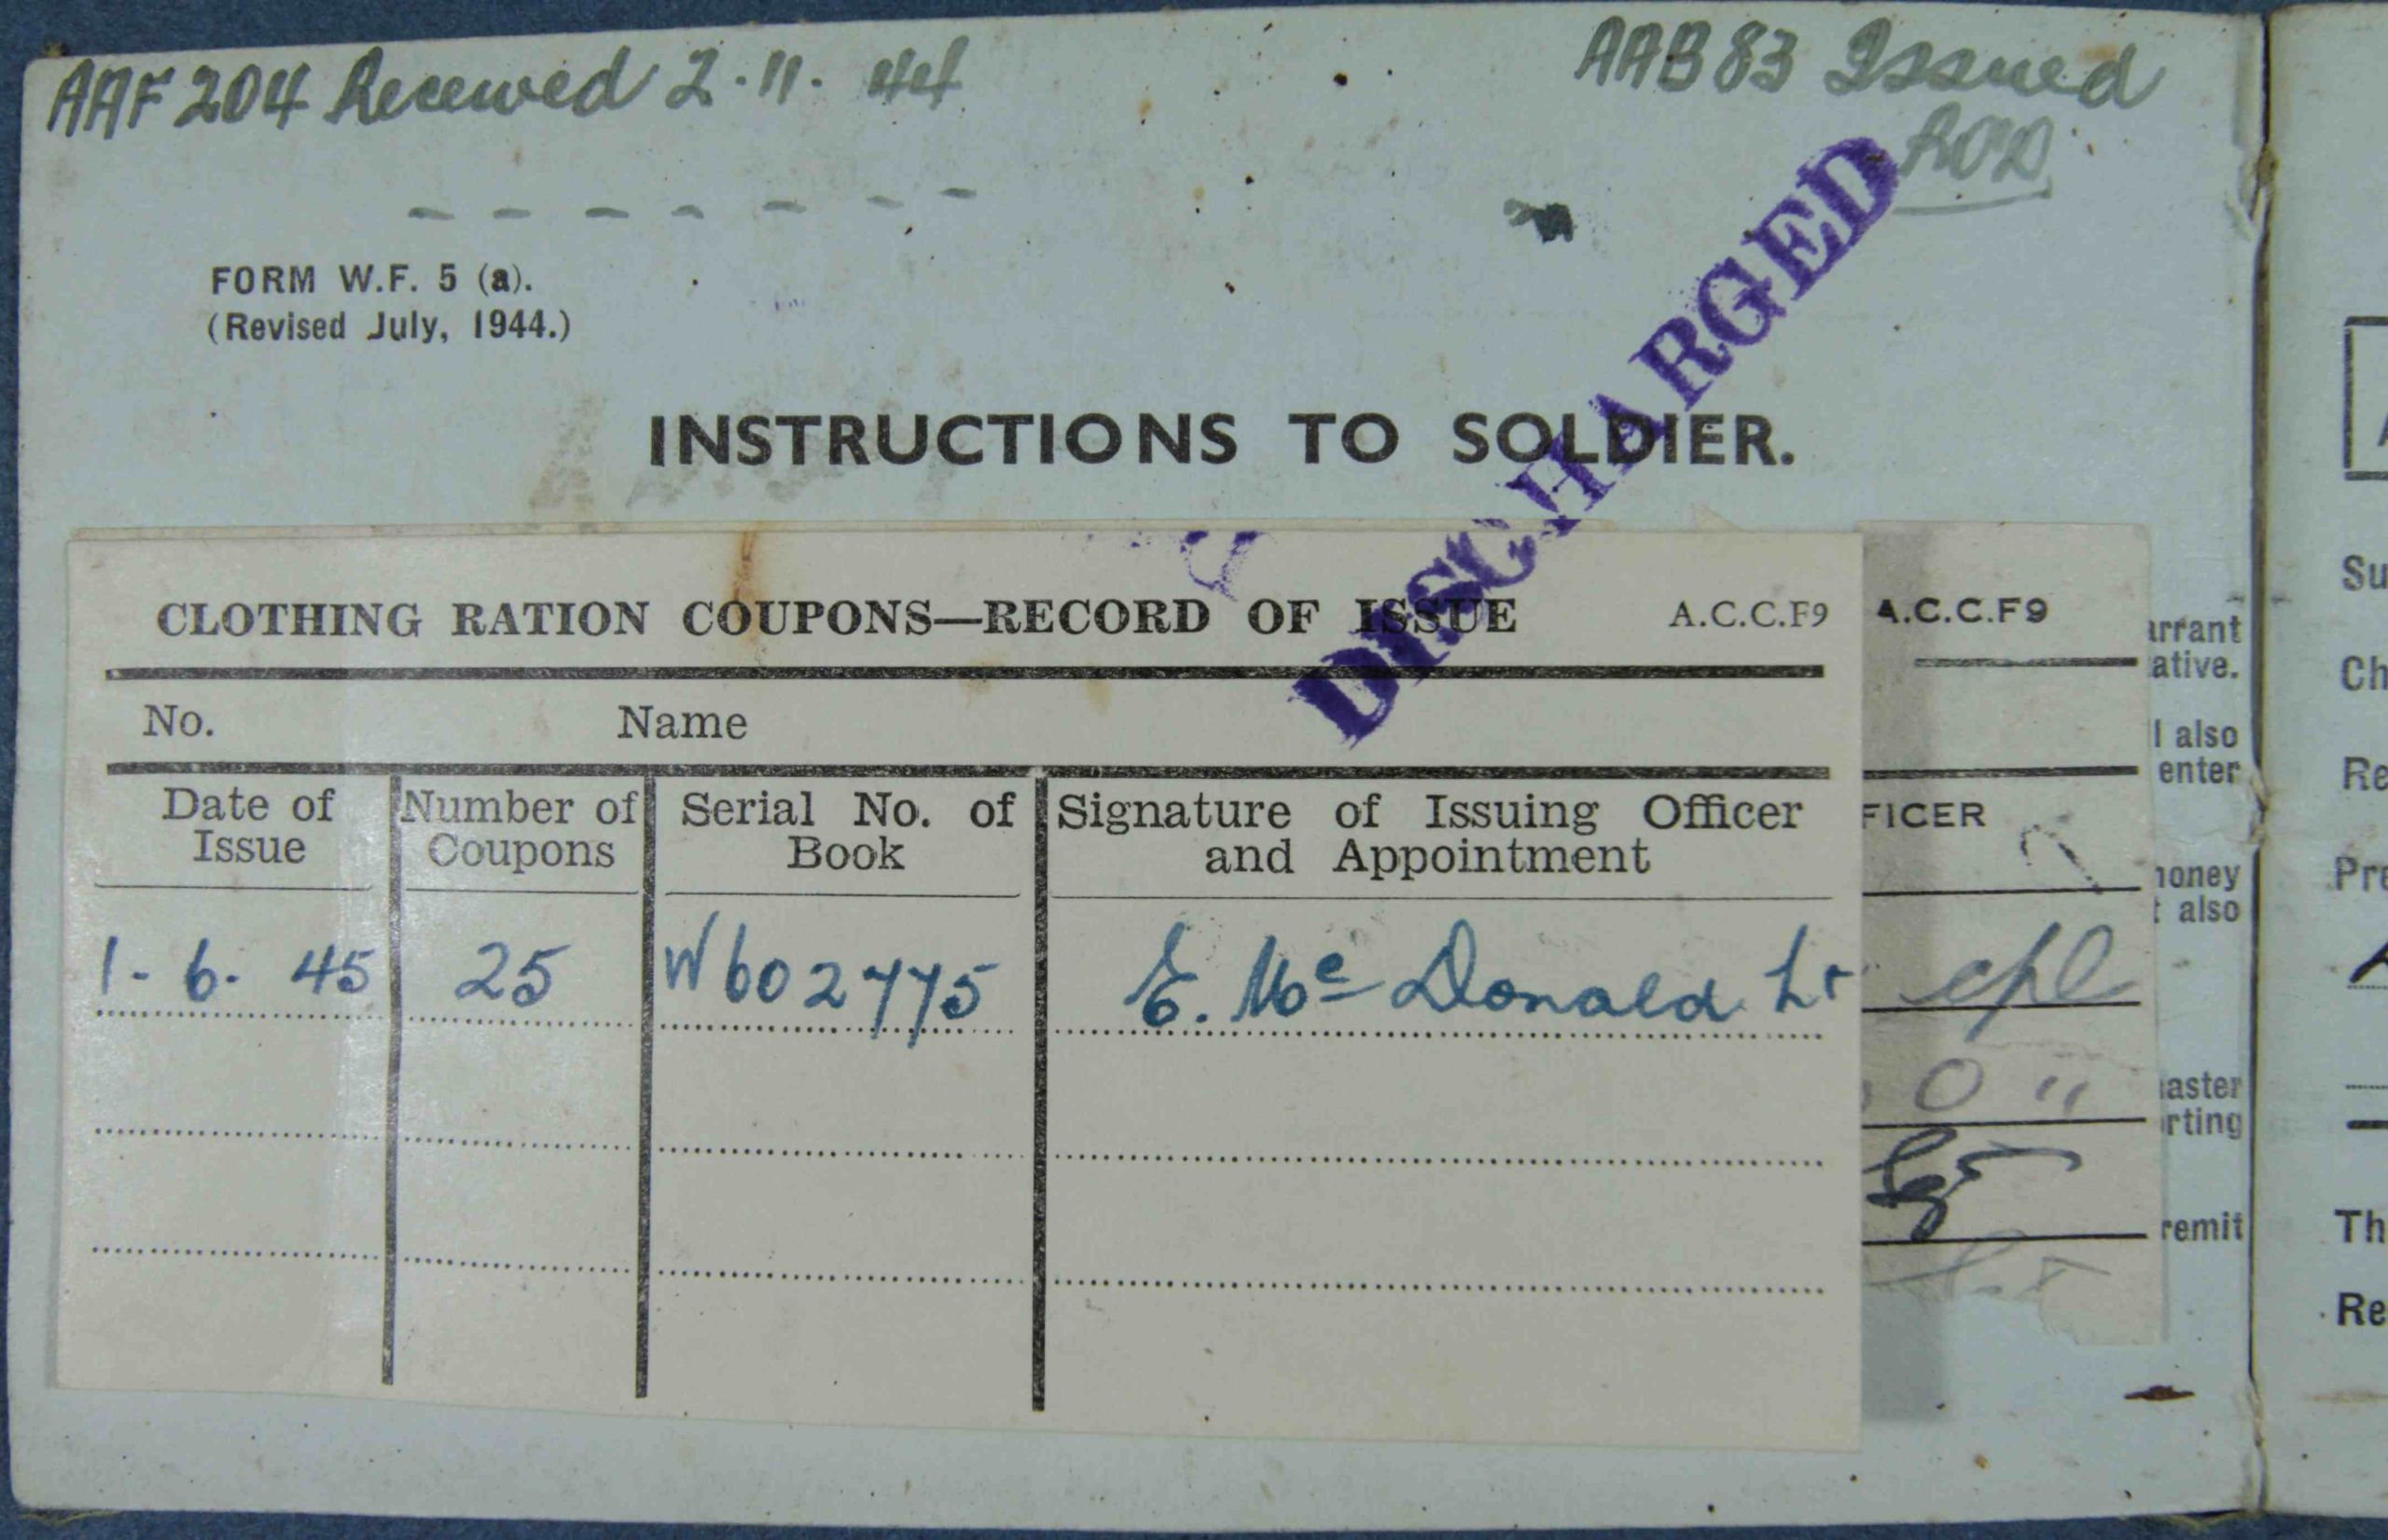 AAF 204 Received 2.11.44
AAB 83 Issued
FORM W.F. 5 (a).
(Revised July, 1944.)
INSTRUCTIONS TO SOLDIER.
DISCHARGED
CLOTHING RATION COUPONS—RECORD OF ISSUE A.C.C.F9
No. Name
Date of Issue
Number of Coupons
Serial No. of Book
Signature of Issuing Officer and Appointment
1-6.45 25 W602775 E. Mc Donald Lt
A.C.C.F9
FICER
cpl
0 "
rrant
ative.
l also
enter
oney
also
aster
rting
remit
Su
Ch
Re
Pre
Th
Re